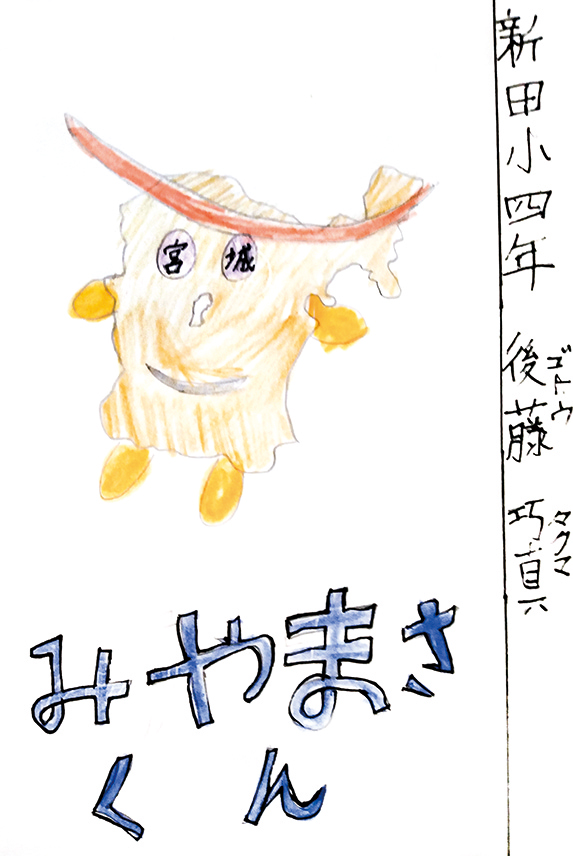 新田小四年 後藤 巧真
ゴトウ タクマ
宮 城
みやまさ
くん